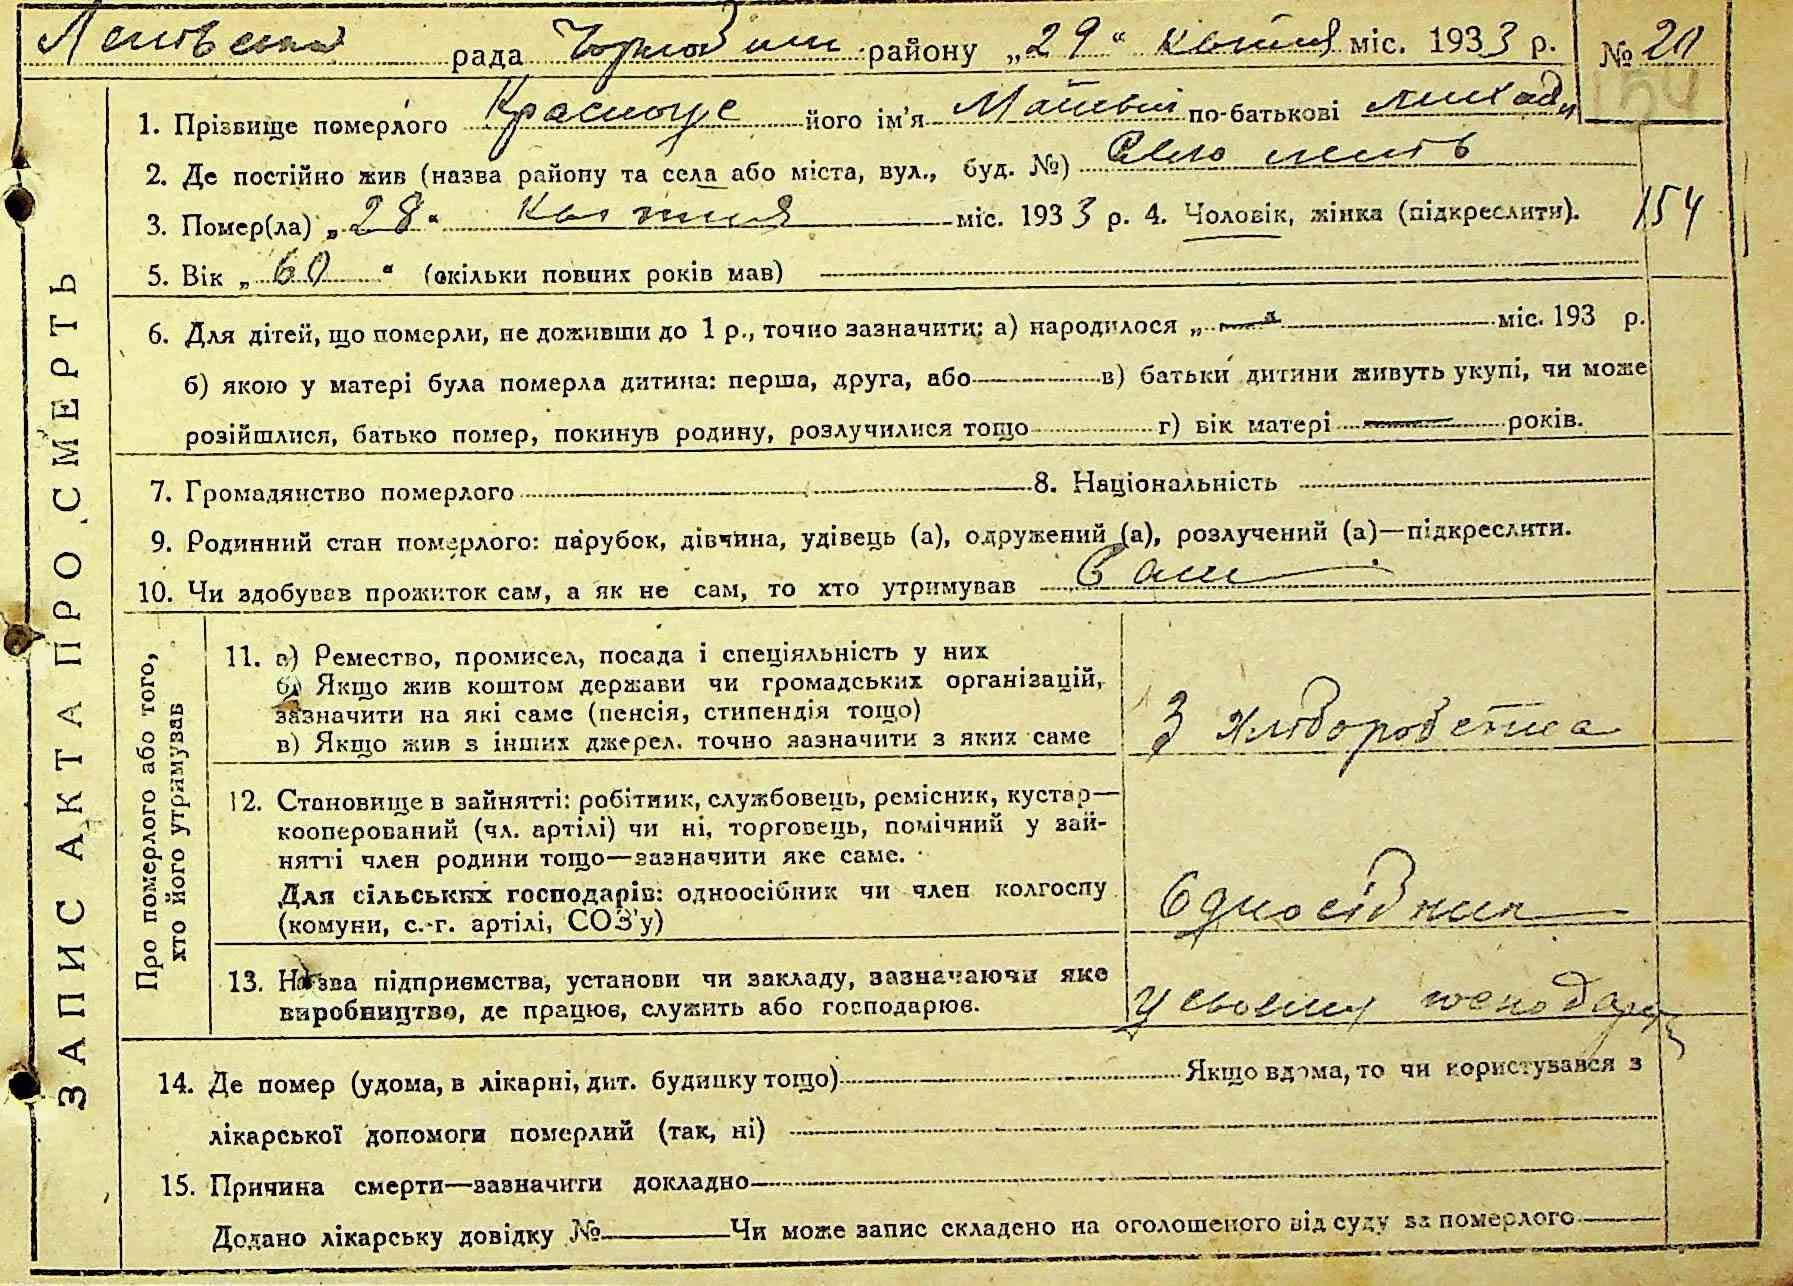 рада района „29“ квітня міс. 1933 р. № 20
154
1. Прізвище померлого Красноус його ім'я Матвій по-батькові
2. Де постійно жив (назва району та села або міста, вул., буд. №) Село
3. Помер(ла) „28“ квітня міс. 1933 р. 4. Чоловік, жінка (підкреслити).
154
5. Вік „60“ (скільки повних років мав)
6. Для дітей, що померли, не доживши до 1 р., точно зазначити: а) народилося „ міс. 193 р.
б) якою у матері була померла дитина: перша, друга, або в) батьки дитини живуть укупі, чи може
розійшлися, батько помер, покинув родину, розлучилися тощо г) вік матері років.
7. Громадянство померлого 8. Національність
9. Родинний стан померлого: парубок, дівчина, удівець (а), одружений (а), розлучений (а)—підкреслити.
10. Чи здобував прожиток сам, а як не сам, то хто утримував Сам
ЗАПИС АКТА ПРО СМЕРТЬ
Про померлого або того,
хто його утримував
11. а) Ремество, промисел, посада і спеціяльність у них
б) Якщо жив коштом держави чи громадських організацій,
зазначити на які саме (пенсія, стипендія тощо)
в) Якщо жив з інших джерел. точно зазначити з яких саме
З хліборобства
12. Становище в зайнятті: робітник, службовець, ремісник, кустар—
кооперований (чл. артілі) чи ні, торговець, помічний у зай-
нятті член родини тощо—зазначити яке саме.
Для сільських господарів: одноосібник чи член колгоспу
(комуни, с.-г. артілі, СОЗ'у)
Одноосібник
13. Назва підприємства, установи чи закладу, зазначаючи яке
виробництво, де працює, служить або господарює.
у своему господарст
14. Де помер (удома, в лікарні, дит. будинку тощо) Якщо вдома, то чи користувався з
лікарської допомоги померлий (так, ні)
15. Причина смерти—зазначити докладно
Додано лікарську довідку № Чи може запис складено на оголошеного від суду за померлого